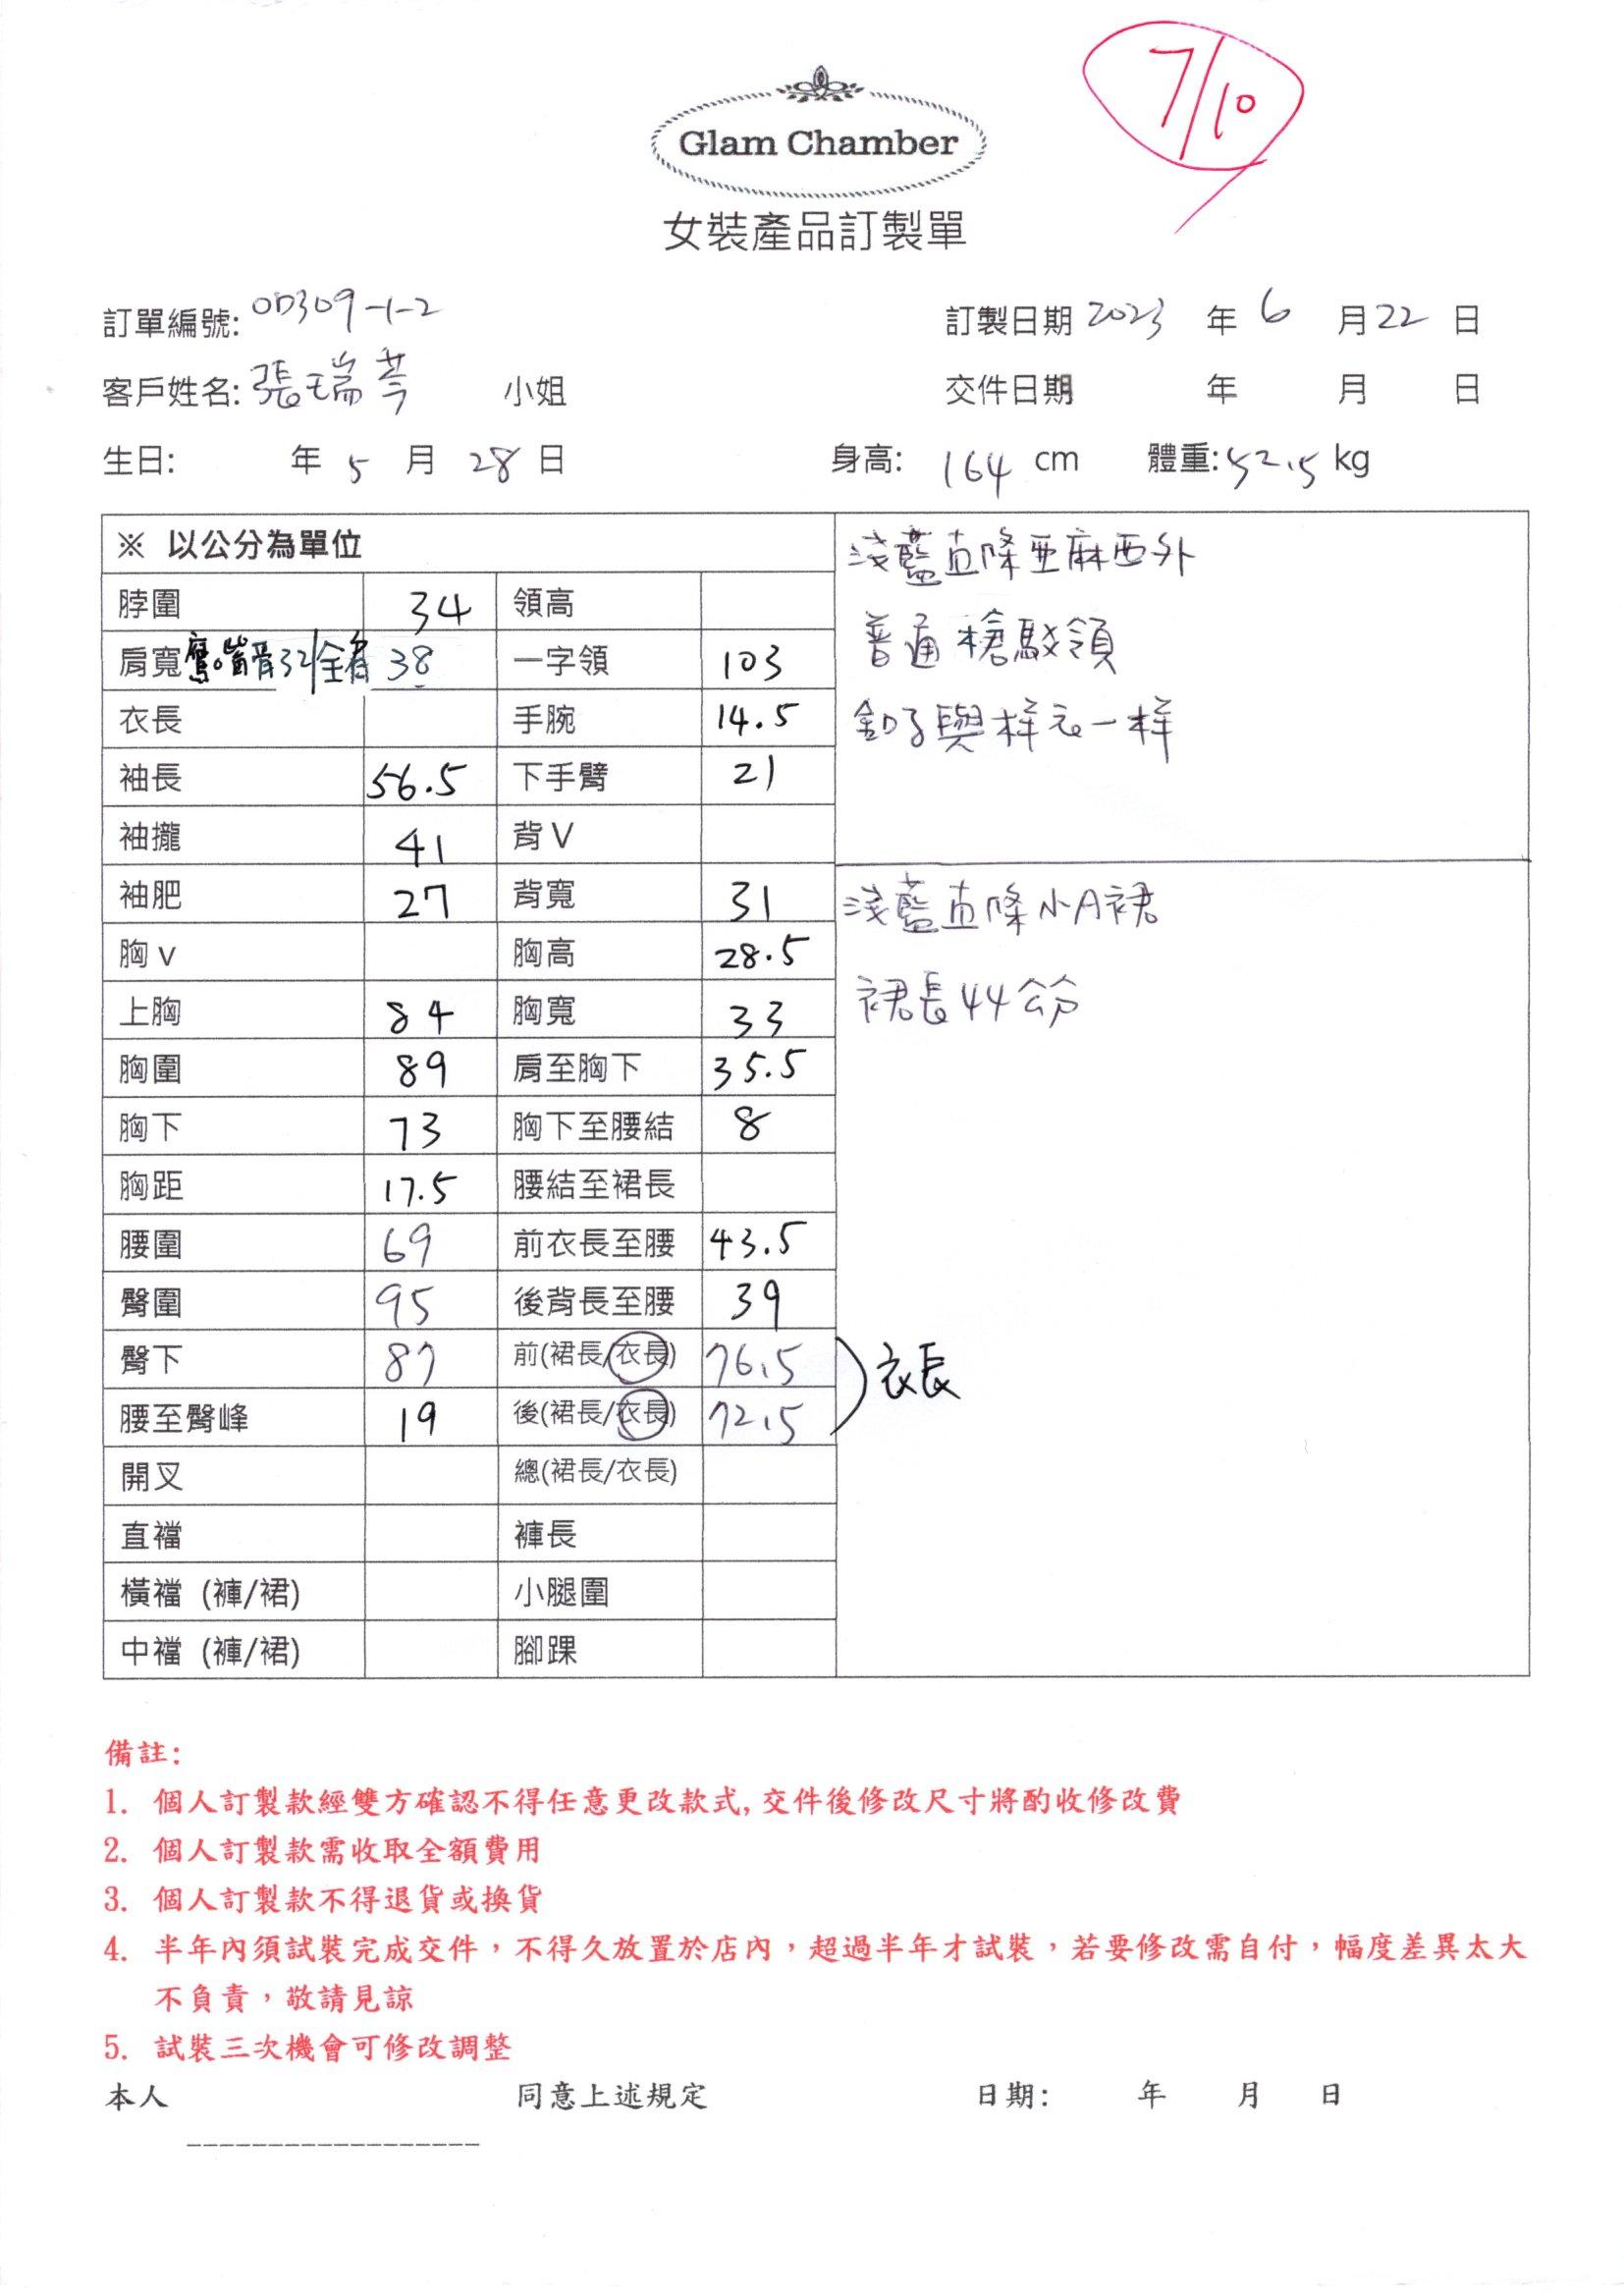 7/10
Glam Chamber
女裝產品訂製單
訂單編號: OD309-1-2 訂製日期 2023 年 6 月 22 日
客戶姓名: 張瑞芩 小姐 交件日期 年 月 日
生日: 年 5 月 28 日 身高: 164 cm 體重: 52.5 kg
※ 以公分為單位
脖圍 34 領高
肩寬 鷹嘴骨32/全肩 38 一字領 103
衣長 手腕 14.5
袖長 56.5 下手臂 21
袖攏 41 背V
袖肥 27 背寬 31
胸v 胸高 28.5
上胸 84 胸寬 33
胸圍 89 肩至胸下 35.5
胸下 73 胸下至腰結 8
胸距 17.5 腰結至裙長
腰圍 69 前衣長至腰 43.5
臀圍 95 後背長至腰 39
臀下 87 前(裙長/衣長) 76.5
腰至臀峰 19 後(裙長/衣長) 72.5
衣長
開叉 總(裙長/衣長)
直襠 褲長
橫襠 (褲/裙) 小腿圍
中襠 (褲/裙) 腳踝
淺藍直條亜麻西外
普通槍駁領
釦子與样衣一样
淺藍直條小A裙
裙長44公分
備註:
1. 個人訂製款經雙方確認不得任意更改款式,交件後修改尺寸將酌收修改費
2. 個人訂製款需收取全額費用
3. 個人訂製款不得退貨或換貨
4. 半年內須試裝完成交件，不得久放置於店內，超過半年才試裝，若要修改需自付，幅度差異太大
不負責，敬請見諒
5. 試裝三次機會可修改調整
本人 同意上述規定 日期: 年 月 日